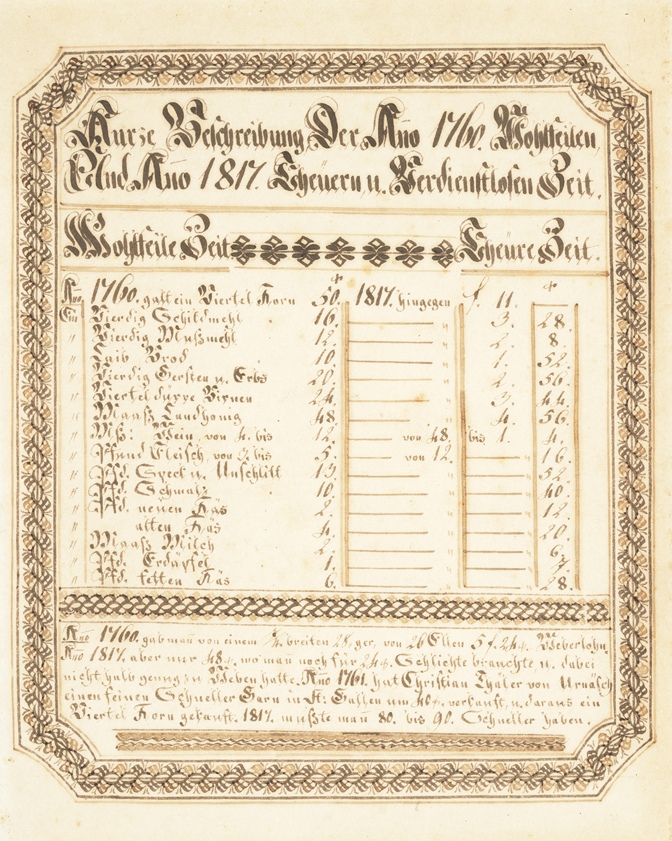 Kurze Beschreibung Der Año 1760. Wohlfeilen
Und Año 1817. Theüern u. Verdienstlosen Zeit.
Wohlfeile Zeit Theüre Zeit.
Año 1760. galt ein Viertel Korn 50. 1817. hingegen f. 11.
Ein Vierdig Schildmehl 16. 3. 28.
" Vierdig Mußmehl 12. 2. 8.
" Laib Brod 10. 1. 52.
" Vierdig Gersten u. Erbs 20. 2. 56.
" Viertel dürre Birnen 24. 3. 44.
" Maaß Landhonig 48. 4. 56.
" Mß: Wein, von 4. bis 12. von 48. bis 1. 4.
" Pfund Fleisch, von bis 5. von 12. 16.
" Pfd. Speck u. Unschlitt 13. 52.
" Pfd. Schmalz 10. 40.
" Pfd. neuen Käs 2. 12.
" alten Käs 4. 20.
" Maaß Milch 2. 6.
" Pfd. Erdäpfel 1. 7.
" Pfd. fetten Käs 6. 28.
Año 1760. gab man von einem breiten ger, von 26 Ellen 5 f. 24 Weberlohn,
Año 1817. aber nur 48 wo man noch für 24 Schlichte brauchte u. dabei
nicht halb genug zu Weben hatte. Año 1761. hat Christian Thäler von Urnäsch
einen feinen Schneller Garn in St: Gallen um 40 verkauft, u. daraus ein
Viertel Korn gekauft. 1817. mußte man 80. bis 90. Schneller haben.